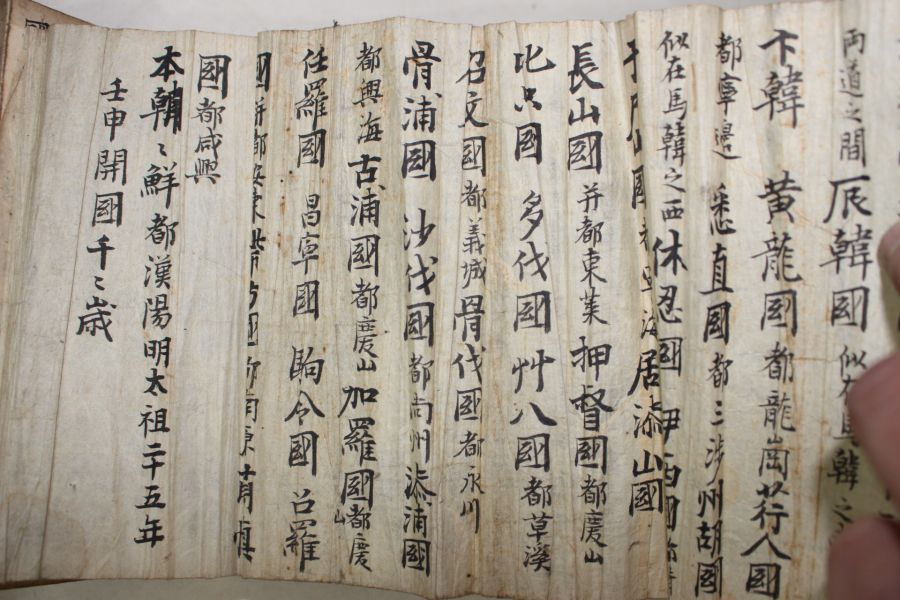 両道之間 辰韓國 似在馬韓之
卞韓 黄龍國 都龍崗 荇人國
都寧邊 悉直國 都三涉 州胡國
似在馬韓之西 休忍國 伊西國
山國 居漆山國
長山國 并都東萊 押督國 都慶山
比只國 多伐國 艸八國 都草溪
召文國 都義城 骨伐國 都永川
骨浦國 沙伐國 都尚州 漆浦國
都興海 古浦國 都慶山 加羅國 都慶山
任羅國 昌寧國 駒令國 召羅
國 并都
國 都咸興
本朝〻鮮都漢陽明太祖二十五年
壬申開國千〻歲